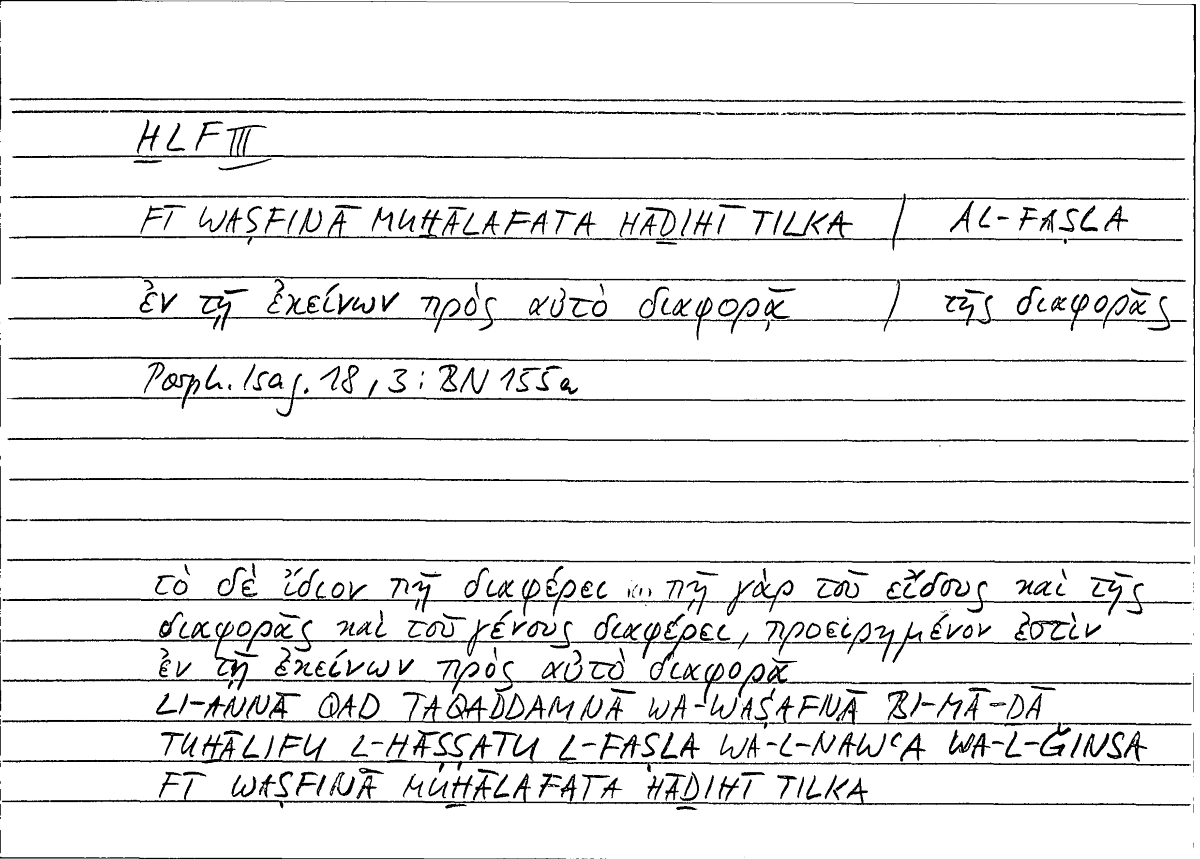 ḪLF III
FĪ WAṢFINĀ MUḪĀLAFATA HĀḎIHĪ TILKA / AL-FAṢLA
ἐν τῇ ἐκείνων πρὸς αὐτὸ διαφορᾷ / τῆς διαφορᾶς
Porph. Isag. 18,3: BN 155a
τὸ δὲ ἴδιον πῇ διαφέρει ... πῇ γὰρ τοῦ εἴδους καὶ τῆς
διαφορᾶς καὶ τοῦ γένους διαφέρει, προειρημένον ἐστὶν
ἐν τῇ ἐκείνων πρὸς αὐτὸ διαφορᾷ
LI-ANNĀ QAD TAQADDAMNĀ WA-WAṢAFNĀ BI-MĀ-ḎĀ
TUḪĀLIFU L-ḪĀṢṢATU L-FAṢLA WA-L-NAWʿA WA-L-ǦINSA
FĪ WAṢFINĀ MUḪĀLAFATA HĀḎIHĪ TILKA